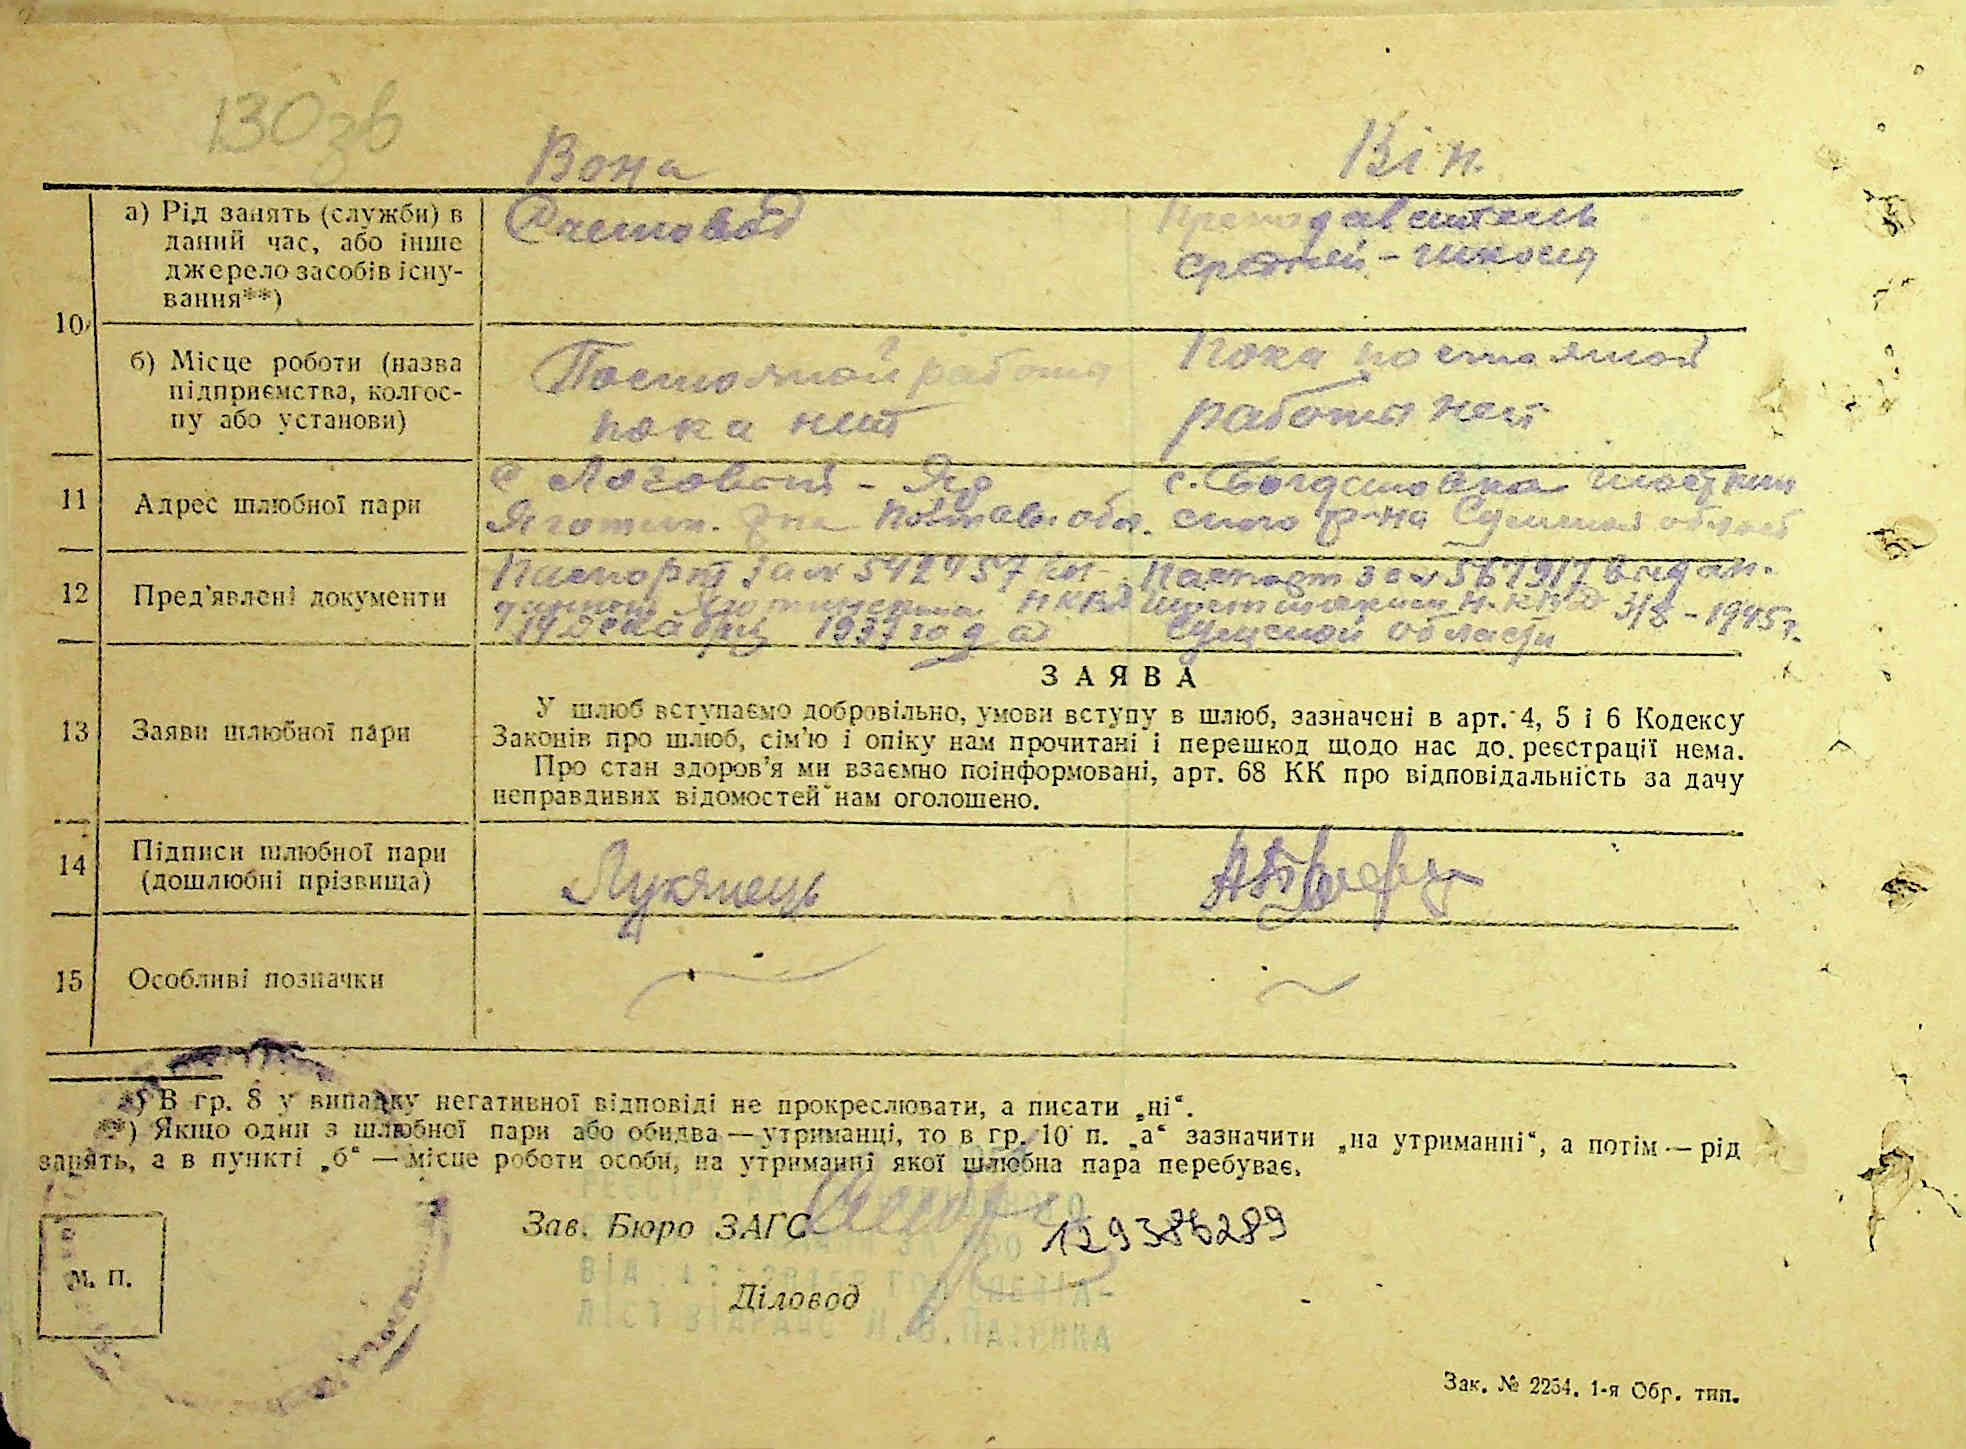 130 зв
Вона Він.
10
а) Рід занять (служби) в
даний час, або інше
джерело засобів існу-
вання**)
Счетовод
Преподаватель
средней - школы
б) Місце роботи (назва
підприємства, колгос-
пу або установи)
Постоянной работы
пока нет
Пока постоянной
работы нет
11 Адрес шлюбної пари
с Лозовский - Яр
Яготин. р-на Полтав. обл.
с. Богдановка Шосткин
ского р-на Сумской област
12 Пред'явлені документи
Паспорт за № 542457 вы-
данный Яготинским НКВД
14 декабря 1937 года
Паспорт за № 567917 выдан.
Шосткинским Н.КВД 3/8 - 1945 г.
Сумской области
13 Заяви шлюбної пари
ЗАЯВА
У шлюб вступаємо добровільно, умови вступу в шлюб, зазначені в арт. 4, 5 і 6 Кодексу
Законів про шлюб, сім'ю і опіку нам прочитані і перешкод щодо нас до реєстрації нема.
Про стан здоров'я ми взаємно поінформовані, арт. 68 КК про відповідальність за дачу
неправдивих відомостей нам оголошено.
14 Підписи шлюбної пари
(дошлюбні прізвища)
Лукянець
15 Особливі позначки
*) В гр. 8 у випадку негативної відповіді не прокреслювати, а писати „ні“.
**) Якщо один з шлюбної пари або обидва — утриманці, то в гр. 10 п. „а“ зазначити „на утриманні“, а потім — рід
занять, а в пункті „б“ — місце роботи особи, на утриманні якої шлюбна пара перебуває.
Зав. Бюро ЗАГС
129386289
М. П.
Діловод
Зак. № 2254. 1-я Обр. тип.